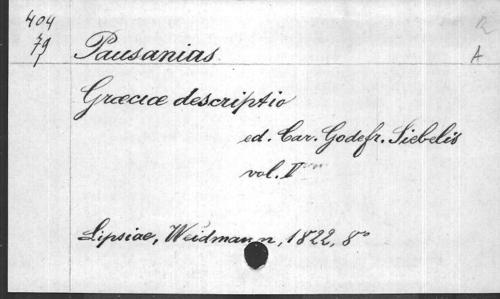 404
79
Pausanias
A
Græciæ descriptio
ed. Car. Godefr. Siebelis
vol. I
Lipsiae, Weidmann, 1822, 8°